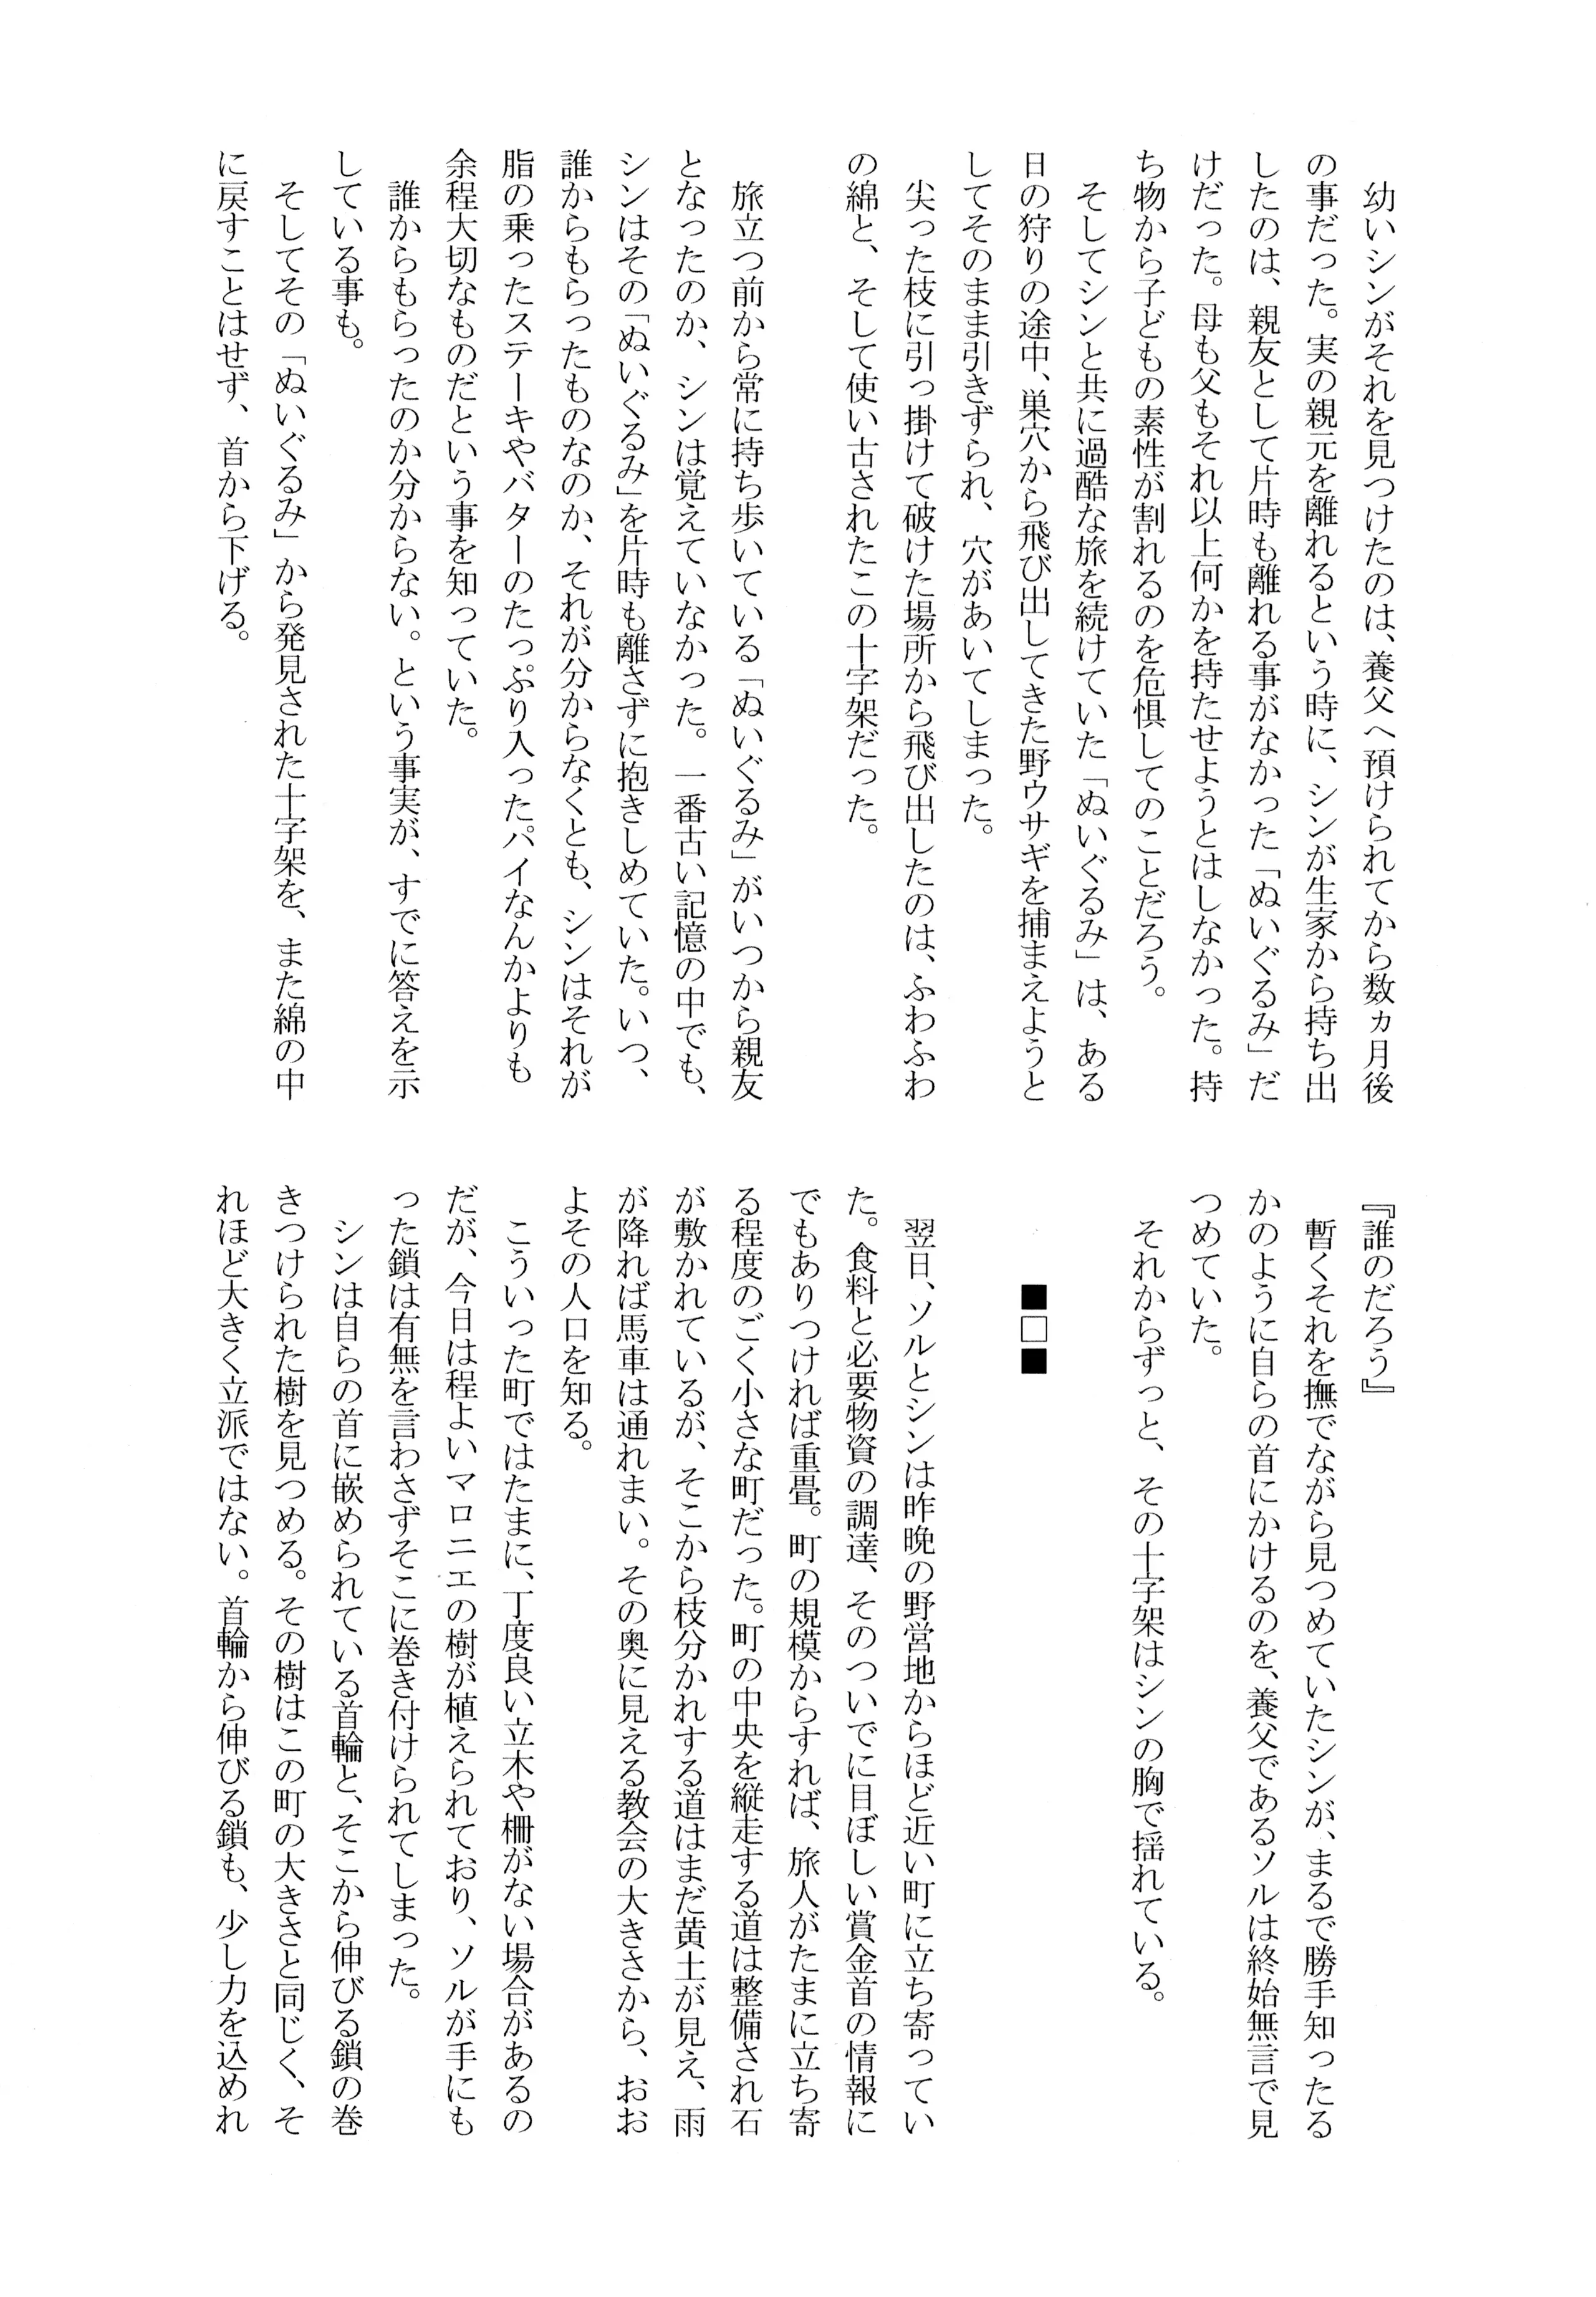 幼いシンがそれを見つけたのは、養父へ預けられてから数ヵ月後
の事だった。実の親元を離れるという時に、シンが生家から持ち出
したのは、親友として片時も離れる事がなかった「ぬいぐるみ」だ
けだった。母も父もそれ以上何かを持たせようとはしなかった。持
ち物から子どもの素性が割れるのを危惧してのことだろう。
　そしてシンと共に過酷な旅を続けていた「ぬいぐるみ」は、ある
日の狩りの途中、巣穴から飛び出してきた野ウサギを捕まえようと
してそのまま引きずられ、穴があいてしまった。
　尖った枝に引っ掛けて破けた場所から飛び出したのは、ふわふわ
の綿と、そして使い古されたこの十字架だった。

　旅立つ前から常に持ち歩いている「ぬいぐるみ」がいつから親友
となったのか、シンは覚えていなかった。一番古い記憶の中でも、
シンはその「ぬいぐるみ」を片時も離さずに抱きしめていた。いつ、
誰からもらったものなのか、それが分からなくとも、シンはそれが
脂の乗ったステーキやバターのたっぷり入ったパイなんかよりも
余程大切なものだという事を知っていた。
　誰からもらったのか分からない。という事実が、すでに答えを示
している事も。
　そしてその「ぬいぐるみ」から発見された十字架を、また綿の中
に戻すことはせず、首から下げる。
『誰のだろう』
　暫くそれを撫でながら見つめていたシンが、まるで勝手知ったる
かのように自らの首にかけるのを、養父であるソルは終始無言で見
つめていた。
　それからずっと、その十字架はシンの胸で揺れている。

■□■

　翌日、ソルとシンは昨晩の野営地からほど近い町に立ち寄ってい
た。食料と必要物資の調達、そのついでに目ぼしい賞金首の情報に
でもありつければ重畳。町の規模からすれば、旅人がたまに立ち寄
る程度のごく小さな町だった。町の中央を縦走する道は整備され石
が敷かれているが、そこから枝分かれする道はまだ黄土が見え、雨
が降れば馬車は通れまい。その奥に見える教会の大きさから、おお
よその人口を知る。
　こういった町ではたまに、丁度良い立木や柵がない場合があるの
だが、今日は程よいマロニエの樹が植えられており、ソルが手にも
った鎖は有無を言わさずそこに巻き付けられてしまった。
　シンは自らの首に嵌められている首輪と、そこから伸びる鎖の巻
きつけられた樹を見つめる。その樹はこの町の大きさと同じく、そ
れほど大きく立派ではない。首輪から伸びる鎖も、少し力を込めれ